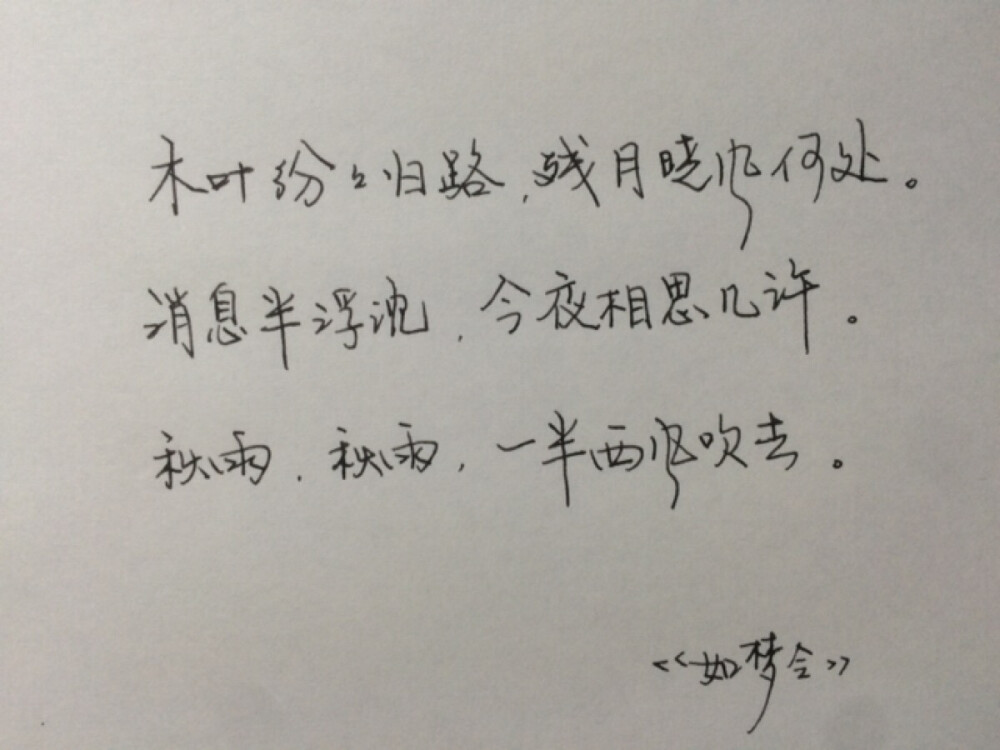 木叶纷々归路，残月晓风何处。
消息半浮沈，今夜相思几许。
秋雨，秋雨，一半西风吹去。
《如梦令》